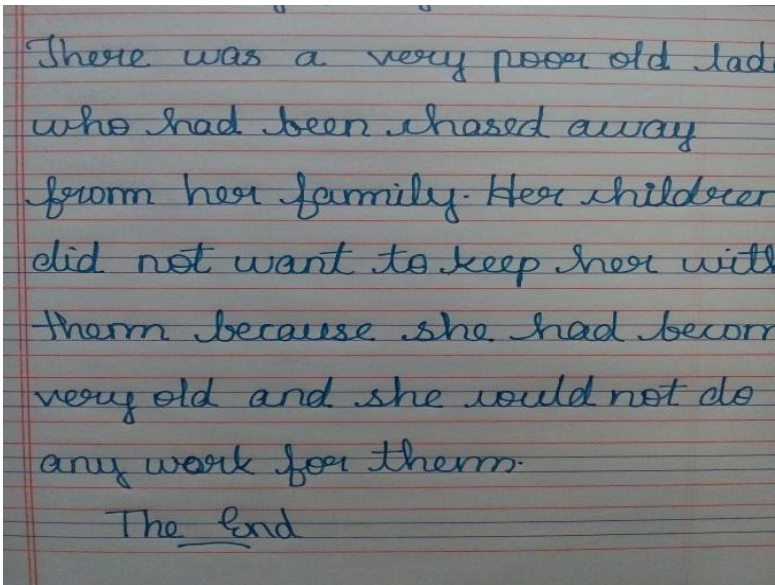 There was a very poor old lad
who had been chased away
from her family. Her children
did not want to keep her with
them because she had becom
very old and she could not do
any work for them.
The End